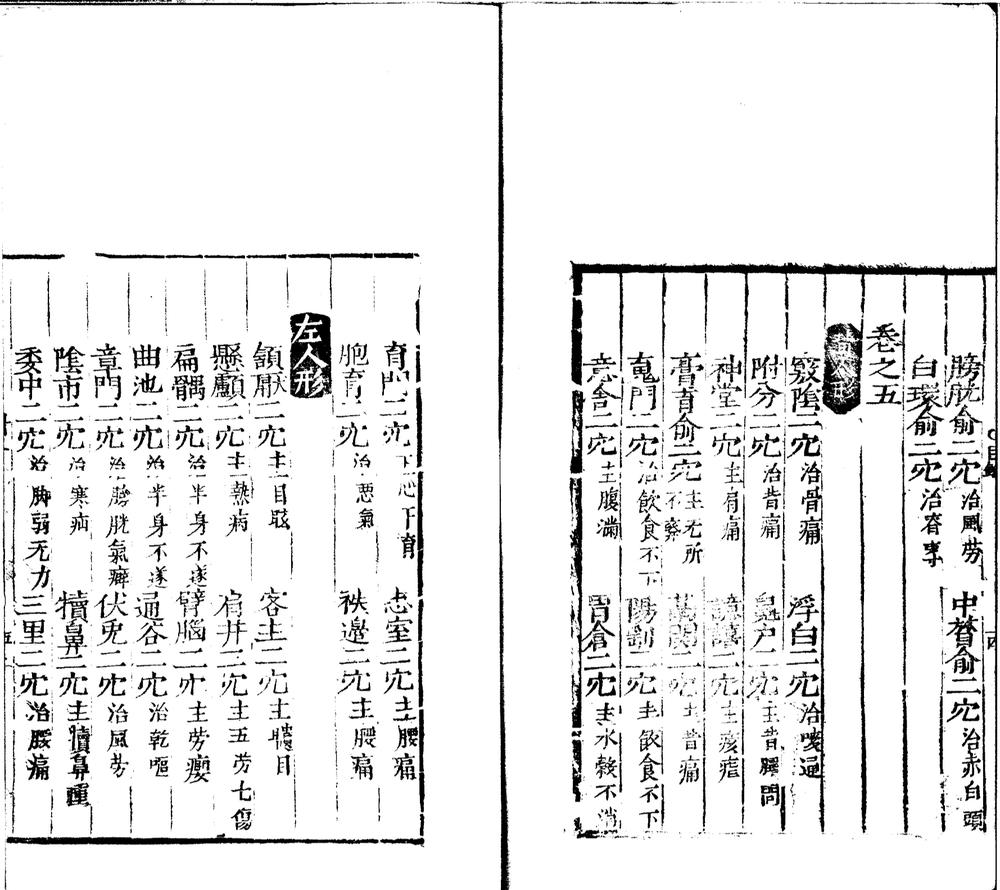 膀胱俞二穴治風勞 中膂俞二穴治赤白
白環俞二穴治脊
卷之五
人形
竅陰二穴治骨痛 浮白二穴治咳逆
附分二穴治背痛 戶二穴主背
神堂二穴主有痛 二穴主痎瘧
膏肓俞二穴主无所不療 二穴主背痛
䰟門二穴治飲食不下 陽剛二穴主飲食不下
意舍二穴主腹滿 胃倉二穴主水穀不消
肓門二穴 志室二穴主腰痛
胞肓二穴治惡氣 秩邊二穴主腰痛
左人形
頷厭二穴主目眩 客主二穴主目
懸顱二穴主熱病 肩井二穴主五劳七傷
扁髃二穴治半身不遂 臂臑二穴主劳瘿
曲池二穴治半身不遂 通谷二穴治乾嘔
章門二穴治膀胱氣癖 伏兎二穴治風劳
陰市二穴治寒病 犢鼻二穴主犢鼻腫
委中二穴治脚弱无力 三里二穴治腰痛